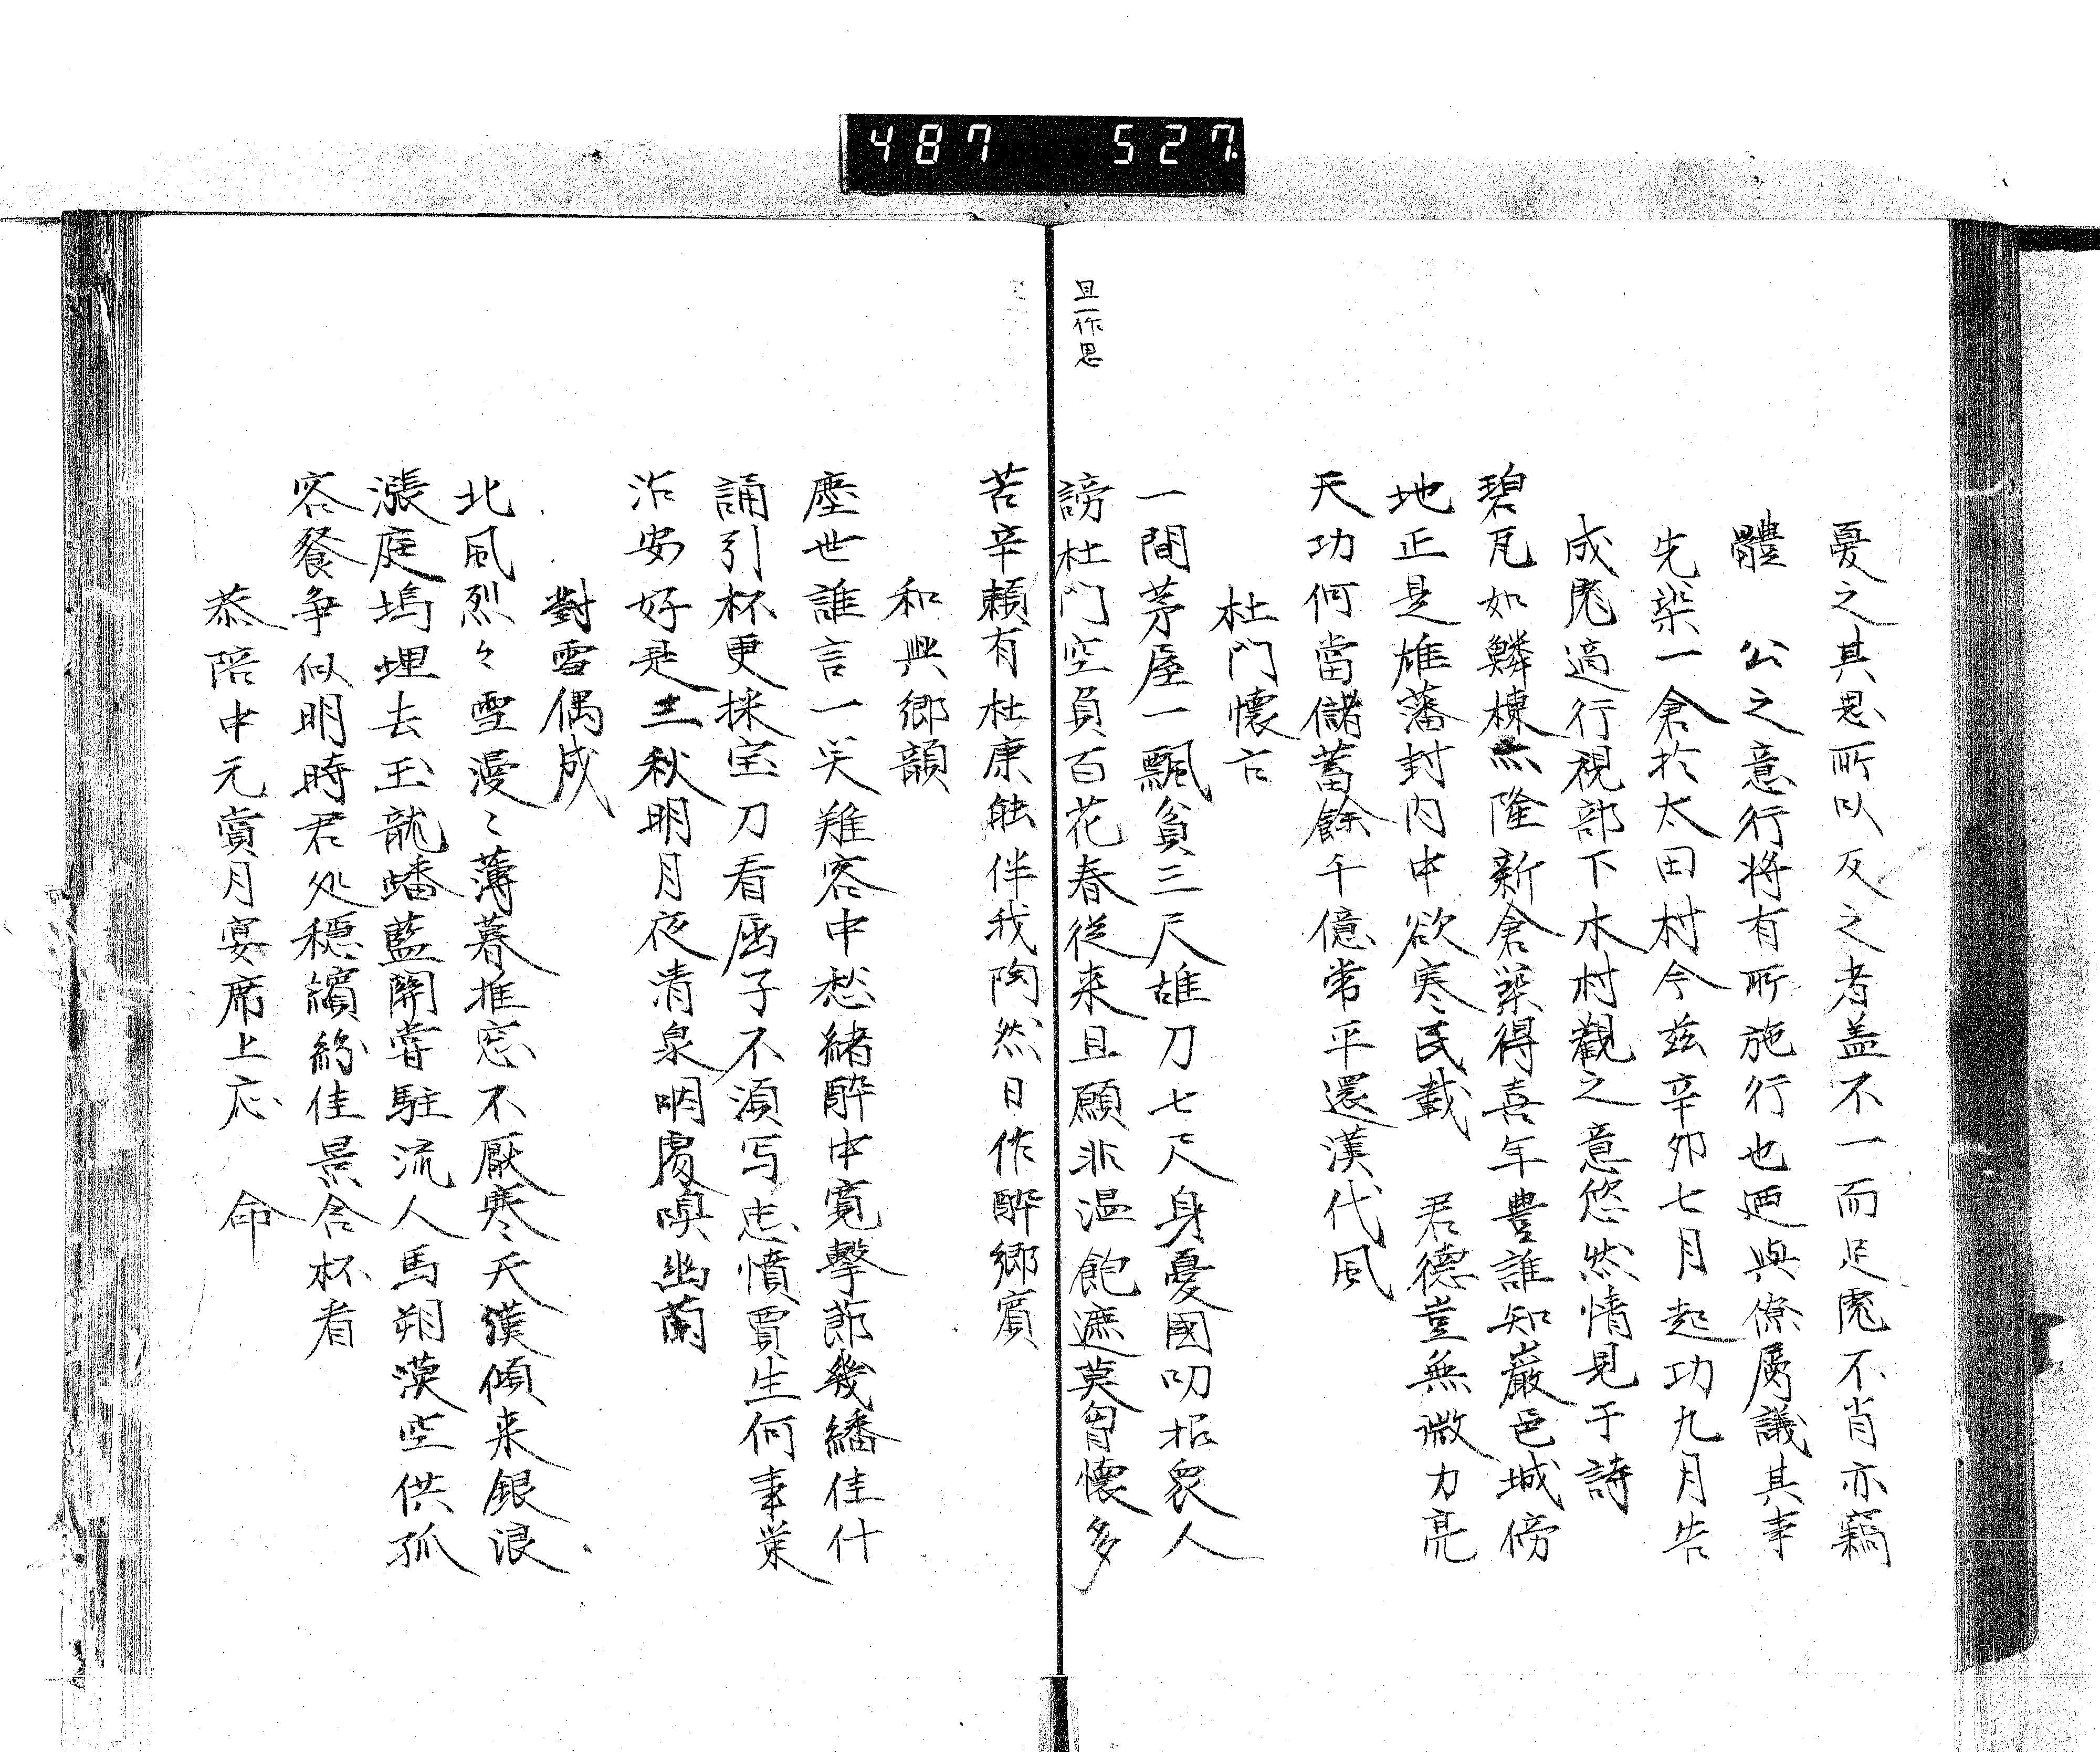 487 527
憂之其思所以及之者盖不一而足彪不肖亦竊
體 公之意行将有所施行也廼與僚属議其事
先築一倉於太田村今茲辛卯七月起功九月告
成彪適行視部下水村觀之意悠然情見于詩
碧瓦如鱗棟亦隆新倉築得喜年豊誰知巖邑城傍
地正是雄藩封内中欲寒民載 君德豈無微力亮
天功何當儲蓄餘千億常平還漢代風
杜門懷古
一間茅屋一瓢貧三尺雄刀七尺身憂國叨招衆人
謗杜門空負百花春從来且願非温飽遮莫胷懷多
且一作思
苦辛頼有杜康能伴我陶然日作醉郷賓
和典郷韻
塵世誰言一笑難客中愁緒醉中寛擊節幾繙佳什
誦引杯更採宝刀看屈子不須写忠憤賈生何事業
治安好是三秋明月夜清泉咽處嗅幽蘭
對雪偶成
北風烈々雪漫〻薄暮推窓不厭寒天漢傾来銀浪
漲庭塢埋去玉龍蟠藍関嘗駐流人馬朔漠空供孤
客餐争似明時君処穏繽紛佳景含杯看
恭陪中元賞月宴席上応 命